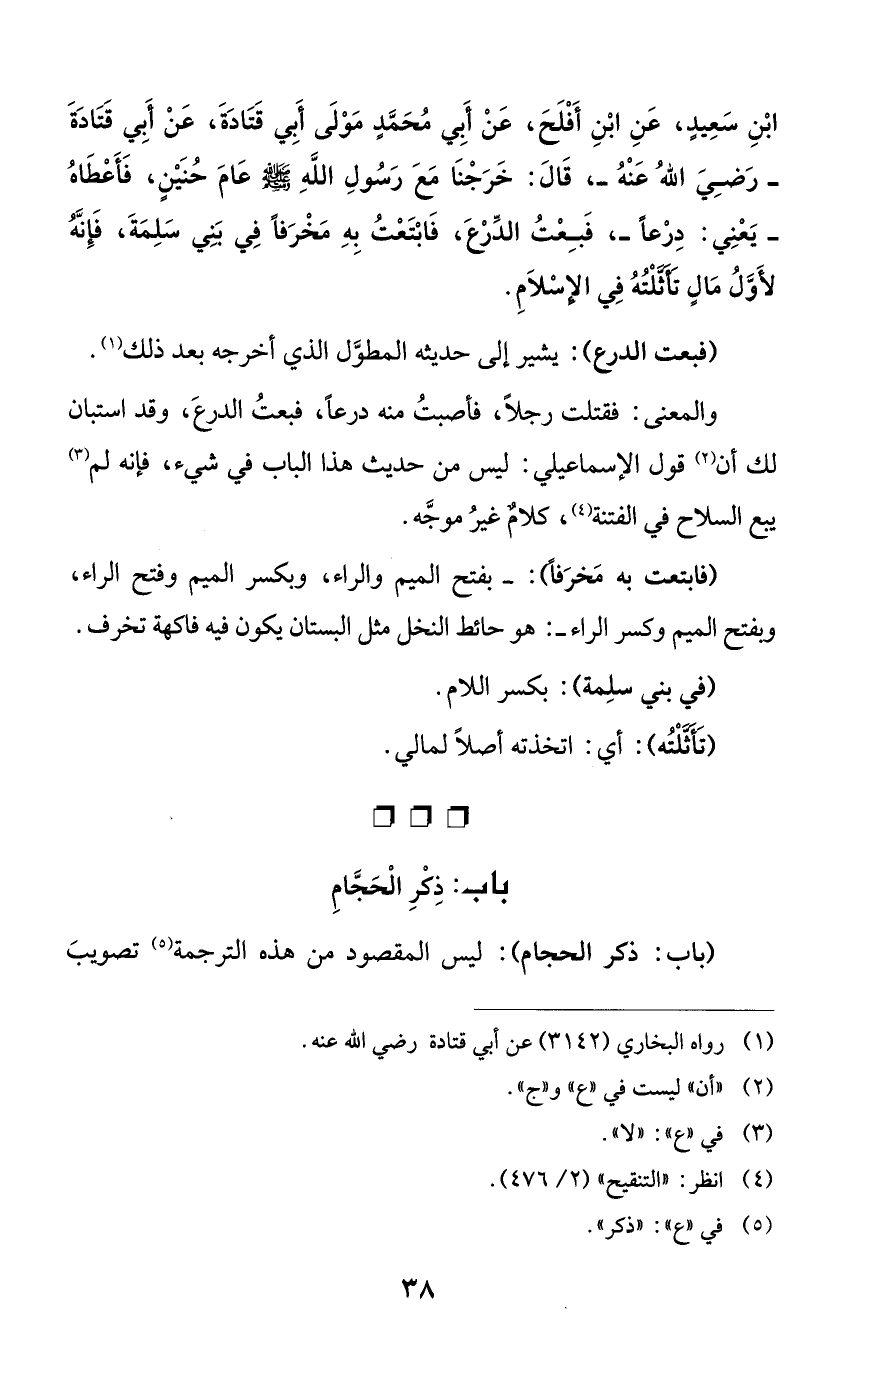 ابْنِ سَعِيدٍ، عَنِ ابْنِ أَفْلَحَ، عَنْ أَبِي مُحَمَّدٍ مَوْلَى أَبِي قَتَادَةَ، عَنْ أَبِي قَتَادَةَ
ـ رَضِيَ اللهُ عَنْهُ ـ، قَالَ: خَرَجْنَا مَعَ رَسُولِ اللَّهِ ﷺ عَامَ حُنَيْنٍ، فَأَعْطَاهُ
ـ يَعْنِي: دِرْعاً ـ، فَبِعْتُ الدِّرْعَ، فَابْتَعْتُ بِهِ مَخْرَفاً فِي بَنِي سَلِمَةَ، فَإِنَّهُ
لأَوَّلُ مَالٍ تَأَثَّلْتُهُ فِي الإِسْلاَمِ.
(فبعت الدرع): يشير إلى حديثه المطوَّل الذي أخرجه بعد ذلك(١).
والمعنى: فقتلت رجلاً، فأصبتُ منه درعاً، فبعتُ الدرعَ، وقد استبان
لك أن(٢) قول الإسماعيلي: ليس من حديث هذا الباب في شيء، فإنه لم(٣)
يبع السلاح في الفتنة(٤)، كلامٌ غيرُ موجَّه.
(فابتعت به مَخرَفاً): ـ بفتح الميم والراء، وبكسر الميم وفتح الراء،
وبفتح الميم وكسر الراء ـ: هو حائط النخل مثل البستان يكون فيه فاكهة تخرف.
(في بني سلِمة): بكسر اللام.
(تَأَثَّلْتُه): أي: اتخذته أصلاً لمالي.
❐ ❐ ❐
باب: ذِكْرِ الْحَجَّامِ
(باب: ذكر الحجام): ليس المقصود من هذه الترجمة(٥) تصويبَ
(١) رواه البخاري (٣١٤٢) عن أبي قتادة رضي الله عنه.
(٢) «أن» ليست في «ع» و«ج».
(٣) في «ع»: «لا».
(٤) انظر: «التنقيح» (٢/ ٤٧٦).
(٥) في «ع»: «ذكر».
٣٨